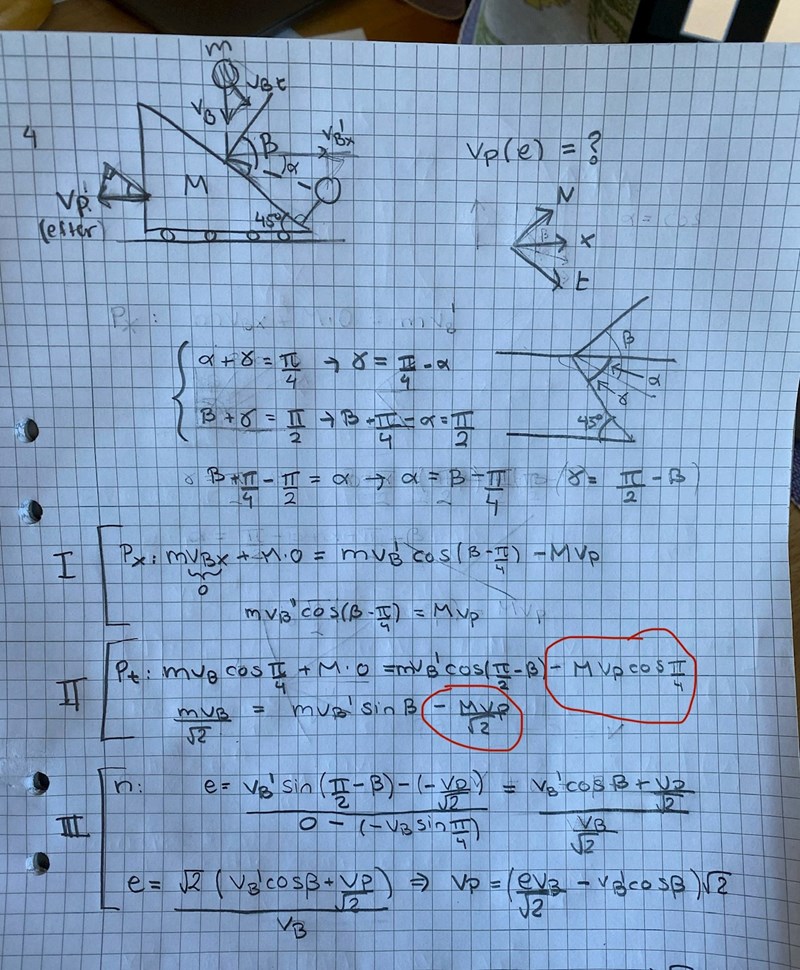 4
m
v_B t
v_B
β
v_B'x
α
M
v_p'
(ester)
45°
v_p(e) = ?
N
β
x
t
P_x:
{ α + γ = π/4 → γ = π/4 - α
β + γ = π/2 → β + π/4 - α = π/2
β
α
γ
45°
β + π/4 - π/2 = α → α = β - π/4 (γ = π/2 - β)
I [ P_x: mv_Bx + M·0 = mv_B' cos(β - π/4) - Mv_p
0
mv_B' cos(β - π/4) = Mv_p
II [ P_t: mv_B cos π/4 + M·0 = mv_B' cos(π/2 - β) - Mv_p cos π/4
mv_B/√2 = mv_B' sin β - Mv_p/√2
III [ n: e = (v_B' sin(π/2 - β) - (-v_p/√2)) / (0 - (-v_B sin π/4)) = (v_B' cos β + v_p/√2) / (v_B/√2)
e = √2 (v_B' cos β + v_p/√2) / v_B ⇒ v_p = (ev_B/√2 - v_B' cos β)√2